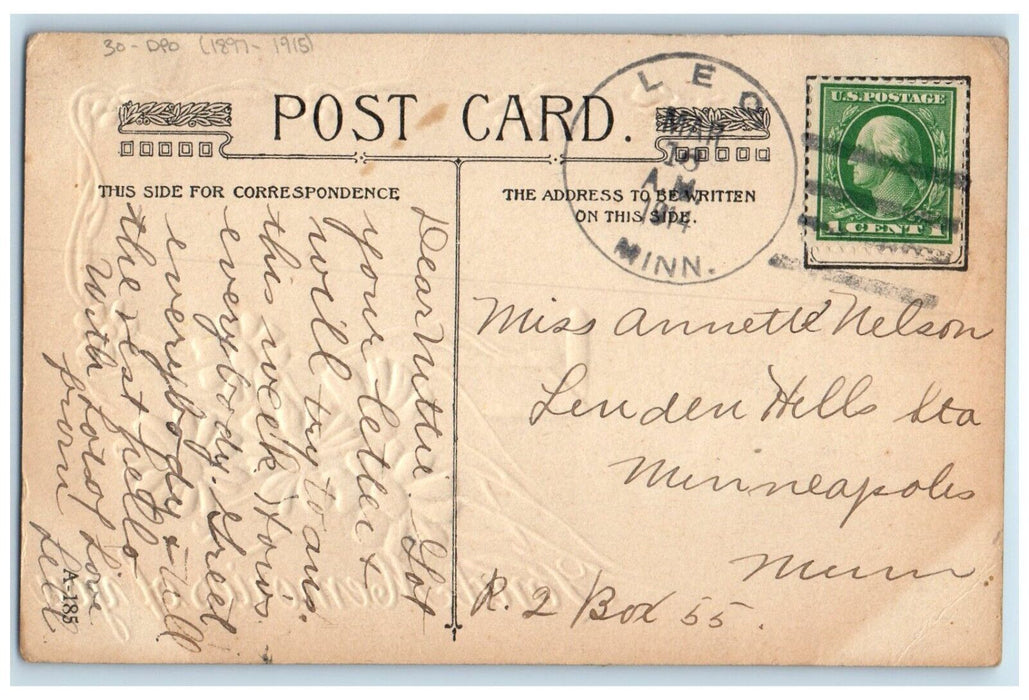 30 - DPO (1897 - 1915)
POST CARD.
THIS SIDE FOR CORRESPONDENCE
THE ADDRESS TO BE WRITTEN
ON THIS SIDE.
LEO
MAR
A.M.
1914
MINN.
U.S. POSTAGE
1 CENT 1
Dear Nettie. Got
your letter &
will try to ans.
this week. Hows
everybody. Greet
everybody & tell
the rest hello
With lots of love
from
Miss Annette Nelson
Linden Hills Sta
Minneapolis
Minn.
R. 2 Box 55.
A-185